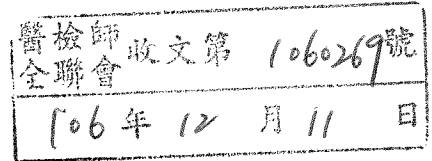 醫檢師全聯會收文第1060269號
106年12月11日